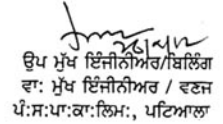 ਉਪ ਮੁੱਖ ਇੰਜੀਨੀਅਰ/ਬਿਲਿੰਗ
ਵਾ: ਮੁੱਖ ਇੰਜੀਨੀਅਰ / ਵਣਜ
ਪੰ:ਸ:ਪਾ:ਕਾ:ਲਿਮ:, ਪਟਿਆਲਾ